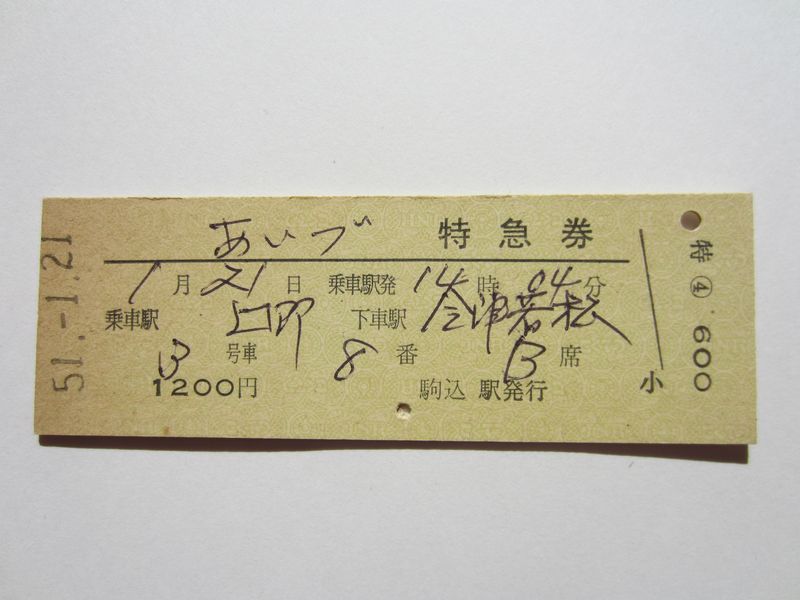 あいづ 特急券
1月21日 乗車駅発 14時04分
乗車駅 上野 下車駅 会津若松
号車 8番 B席
1200円 駒込 駅発行 小
51.-1.21
特④ 600